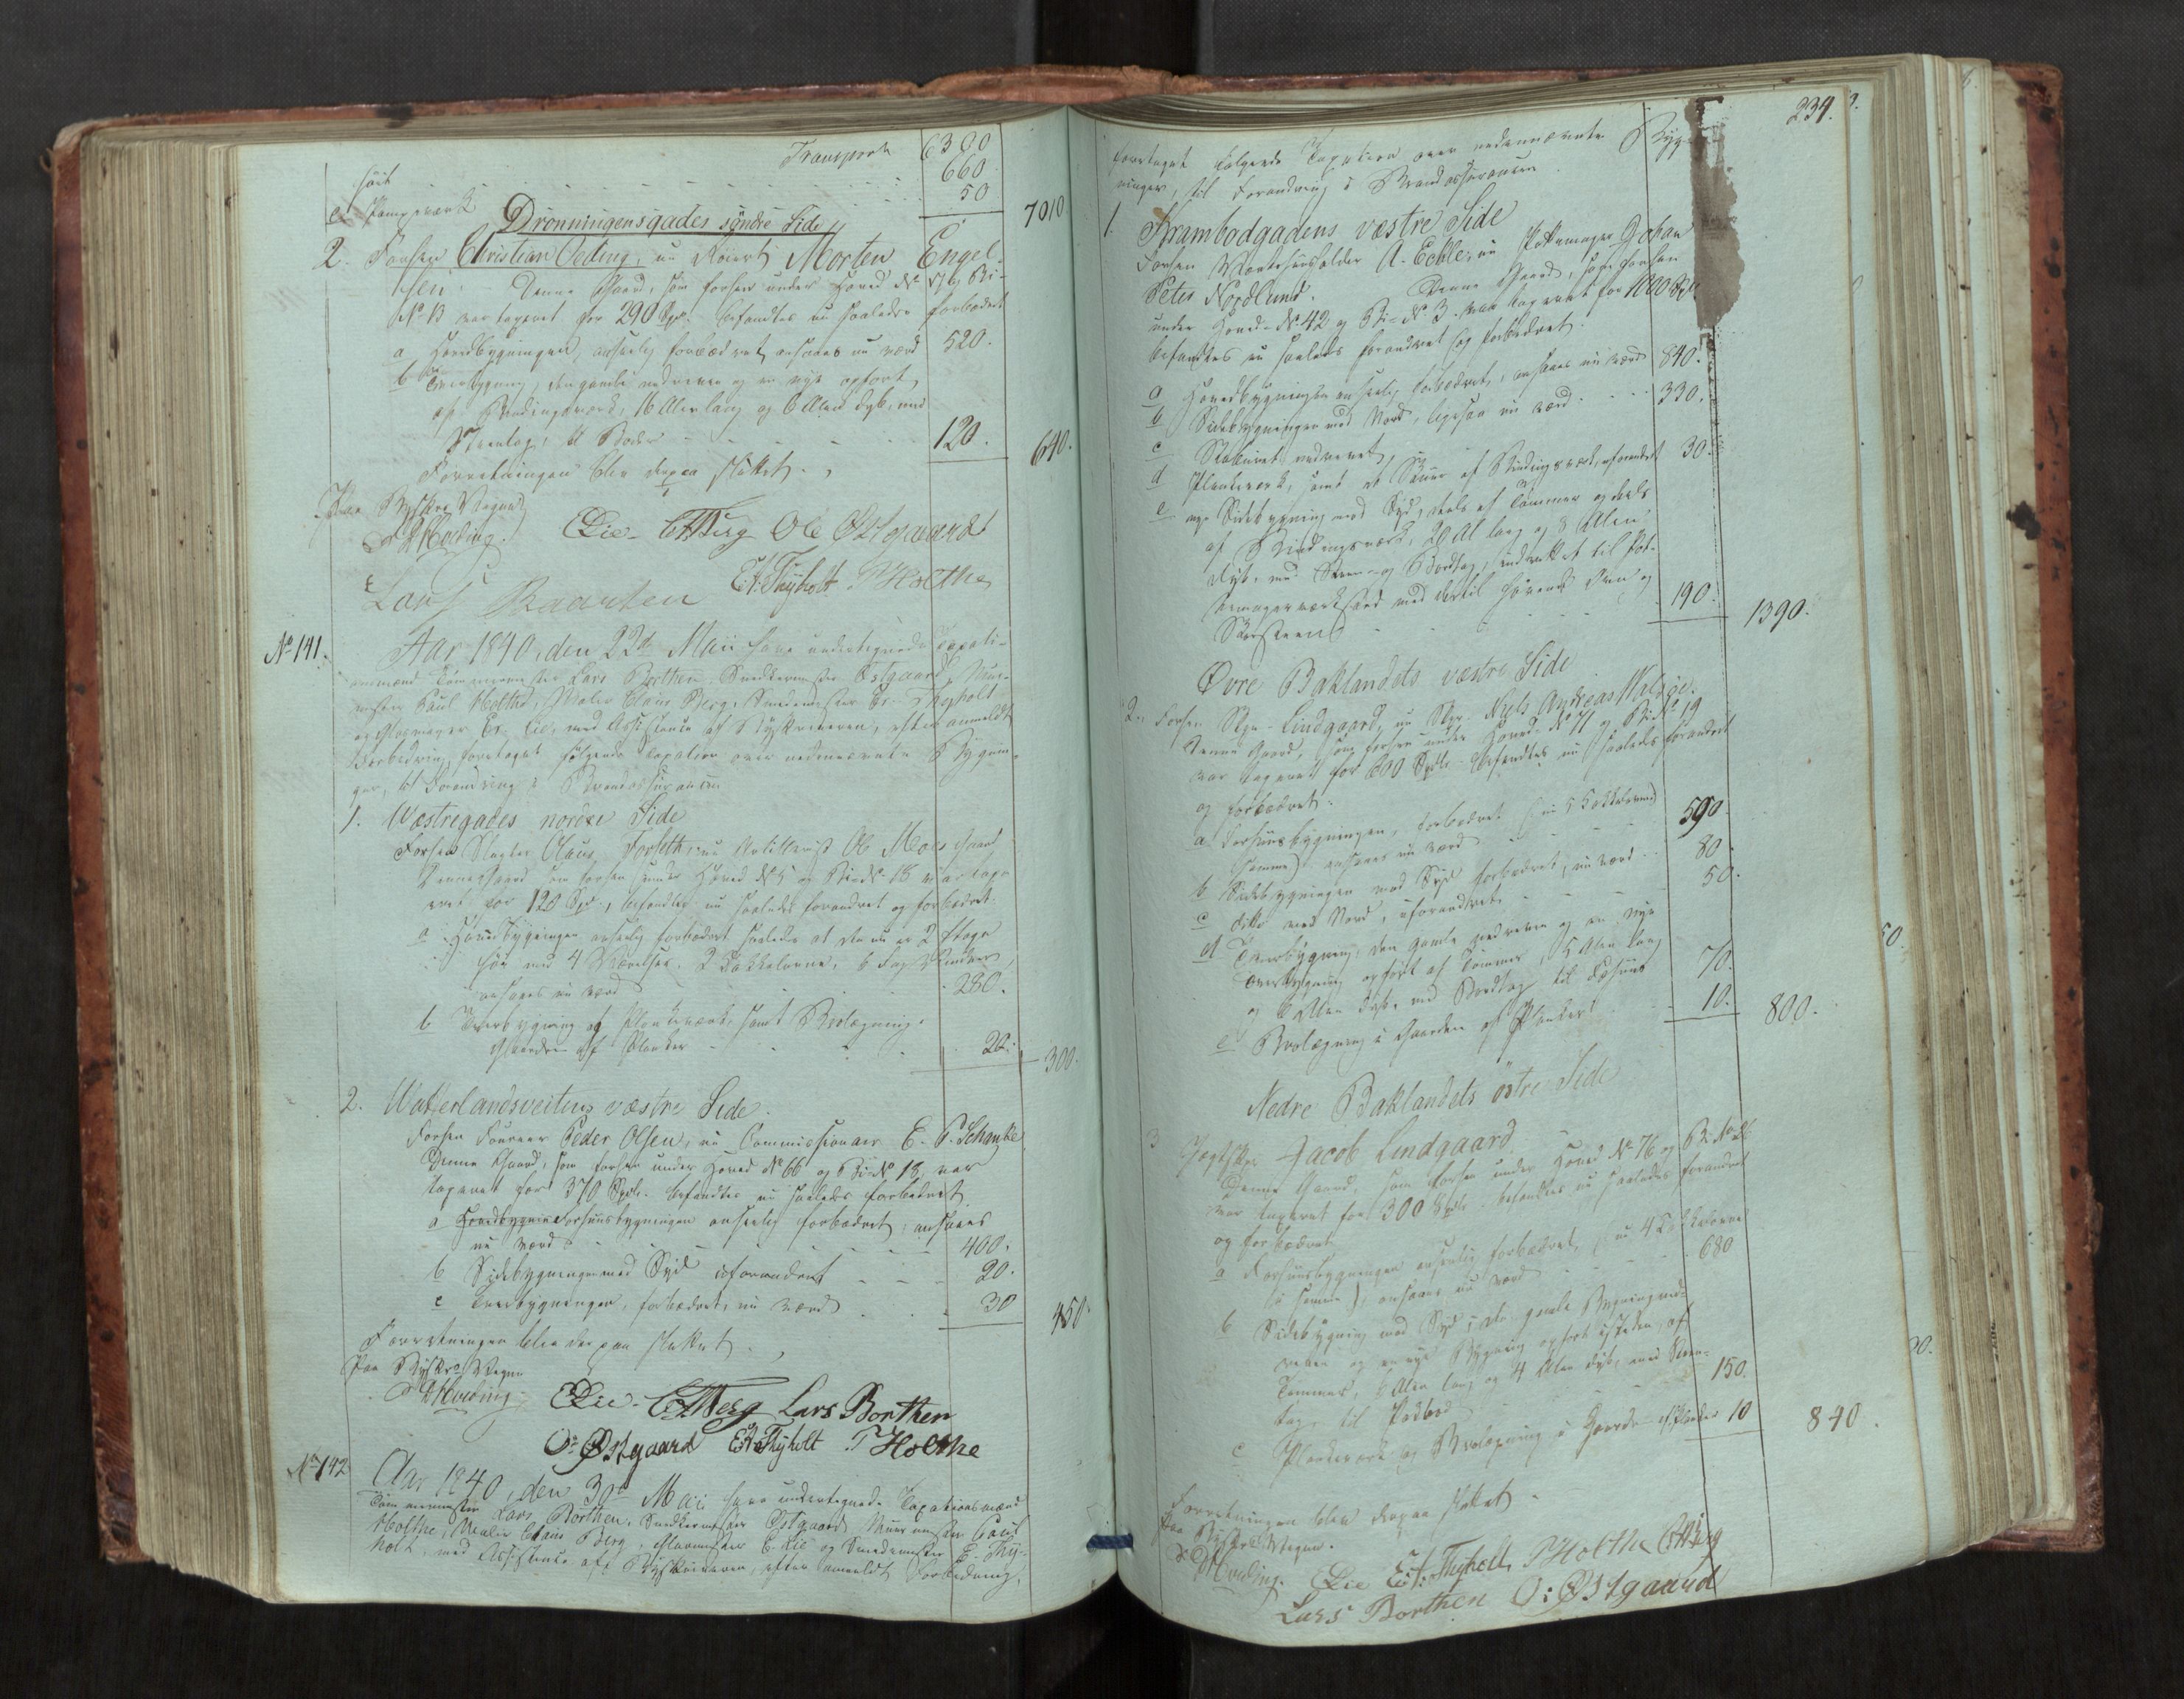 Transport 6300
høit 660
e Pompeværk 50 7010
Dronningensgades søndre Side
2. Forhen Christian Oeding, nu Kiørert Morten Engel-
sen. Denne Gaard, som forhen under Hoved No og Bi-
No 13 var taxeret for 290 Spd. befandtes nu saaledes forbedret
a Hovedbygningen, anseelig forbedret, ansaaes nu værd 520.
b Tverbygning, den gamle nedreven og en nye opført
af Bindingsværk, 16 Alen lang og 6 Alen dyb, med
Steentag, til Boder 120. 640.
Forretningen blev derpaa sluttet.
Paa Byskr. Vegne
Hveding. ELie CMBerg Ole Østgaard
Lars Baarten E. A. Thyholt P Holthe
No 141. Aar 1840, den 22de Maii have undertegnede Taxati-
onsmænd Tømmermester Lars Borthen, Snedkermester Østgaard, Muur-
mester Paul Holthe, Maler Claus Berg, Smedemester Er. Thyholt
og Glasmager Er. Lie, med Assistence af Byskriveren, efter anmeldt
Forbedring, foretaget følgende Taxation over nedennævnte Bygnin-
ger, til Forandring i Brandassurancen
1. Vestregades nordre Side
Forhen Slagter Claus Forseth, nu Artillerist Ole Moes Gaard
Denne Gaard som forhen under Hoved No 5 og Bi No 18 var taxe-
ret for 120 Spd., befandtes nu saaledes forandret og forbedret.
a Hovedbygningen anseelig forbedret saaledes at den nu er 2 Etage
høi med 4 Værelser, 2 Kakkelovne, 6 Fag Vinduer,
ansaaes nu værd 280.
b Tverbygning af Plankeværk, samt Brolægning i
Gaarden af Planker 20. 300.
2. Waterlandsveitens væstre Side.
Forhen Foureer Peder Olsen, nu Commissionair E. P. Schanke
Denne Gaard, som forhen under Hoved No 66 og Bi-No 18, var
taxeret for 370 Spd. befandtes nu saaledes forbedret
a Hovedbygnin Forhuusbygningen anseelig forbedret, ansaaes
nu værd 400.
b Sidebygningen med Syd uforandret 20.
c Tverbygningen, forbedret, nu værd 30 450.
Forretningen blev derpaa sluttet.
Paa Byskrs Vegne
Hveding. ELie. CMBerg Lars Borthen
O: Østgaard E. A. Thyholt P Holthe
No 142 Aar 1840, den 30te Maii have undertegnede Taxationsmænd
Tømmermester Lars Borthen, Snedkermester Østgaard, Muurmester Paul
Holthe, Maler Claus Berg, Glasmester E. Lie og Smedemester E. Thy-
holt, med Assistence af Byskriveren, efter anmeldt Forbedring,
234.
foretaget følgende Taxation over nedennævnte Byg-
ninger, til Forandring i Brandassurancen.
1. Krambodgadens væstre Side
Forhen Værtshuusholder A. Echle, nu Pottemager Johan
Peter Nordlund. Denne Gaard, som forhen
under Hoved-No 42 og Bi-No 3. var taxeret for 1000 Spd.
befandtes nu saaledes forandret og forbedret.
a Hovedbygningen anseelig forbedret, ansaaes nu værd 840.
b Sidebygningen med Nord, ligesaa nu værd 330.
c Staburet nedrevet,
d Plankeværk, samt et Skuur af Bindingsværk, uforandret 30.
e nye Sidebygning med Syd, deels af Tømmer og deels
af Bindingsværk, 20 Al lang og 8 Alen
dyb, med Steen- og Bordtag, indrettet til Pot-
temagerværksted med dertil hørende Ovn og
Skorsteen 190. 1390.
Øvre Baklandets væstre Side
2. Forhen Skpr. Lindgaard, nu Skpr. Niels Andreas Walsøe.
Denne Gaard, som forhen under Hoved-No 71 og Bi No 19
var taxeret for 600 Spdlr befandtes nu saaledes forandret
og forbedret.
a Forhuusbygningen, forbedret (nu 5 Kakkelovne i
samme) ansaaes nu værd 590.
b Sidebygningen med Syd forbedret, nu værd 80
c ditto med Nord, uforandret 50.
d Tverbygning, den gamle nedreven og en nye
Tverbygning opført af Tømmer, 5 Alen lang
og 6 Alen dyb, med Bordtag til Fæhuus 70.
e Brolægning i Gaarden af Planker 10. 800.
Nedre Baklandets østre Side
3 Jegtskpr Jacob Lindgaard
Denne Gaard, som forhen under Hoved No 76 og Bi No
var taxeret for 300 Spdr. befandtes nu saaledes forandret
og forbedret
a Forhuusbygningen anseelig forbedret, (nu 4 Kakkelovne
i samme), ansaaes nu værd 680
b Sidebygning med Syd, den gamle Bygning ned-
reven og en nye Bygning opført isteden, af
Tømmer, 6 Alen lang og 4 Alen dyb, med Steen-
tag, til Madbod 150.
c Plankeværk og Brolægning i Gaarden af Planker 10 840.
Forretningen blev derpaa sluttet.
Paa Byskrs Vegne.
Hveding. ELie E. A. Thyholt P Holthe CMBerg
Lars Borthen O: Østgaard